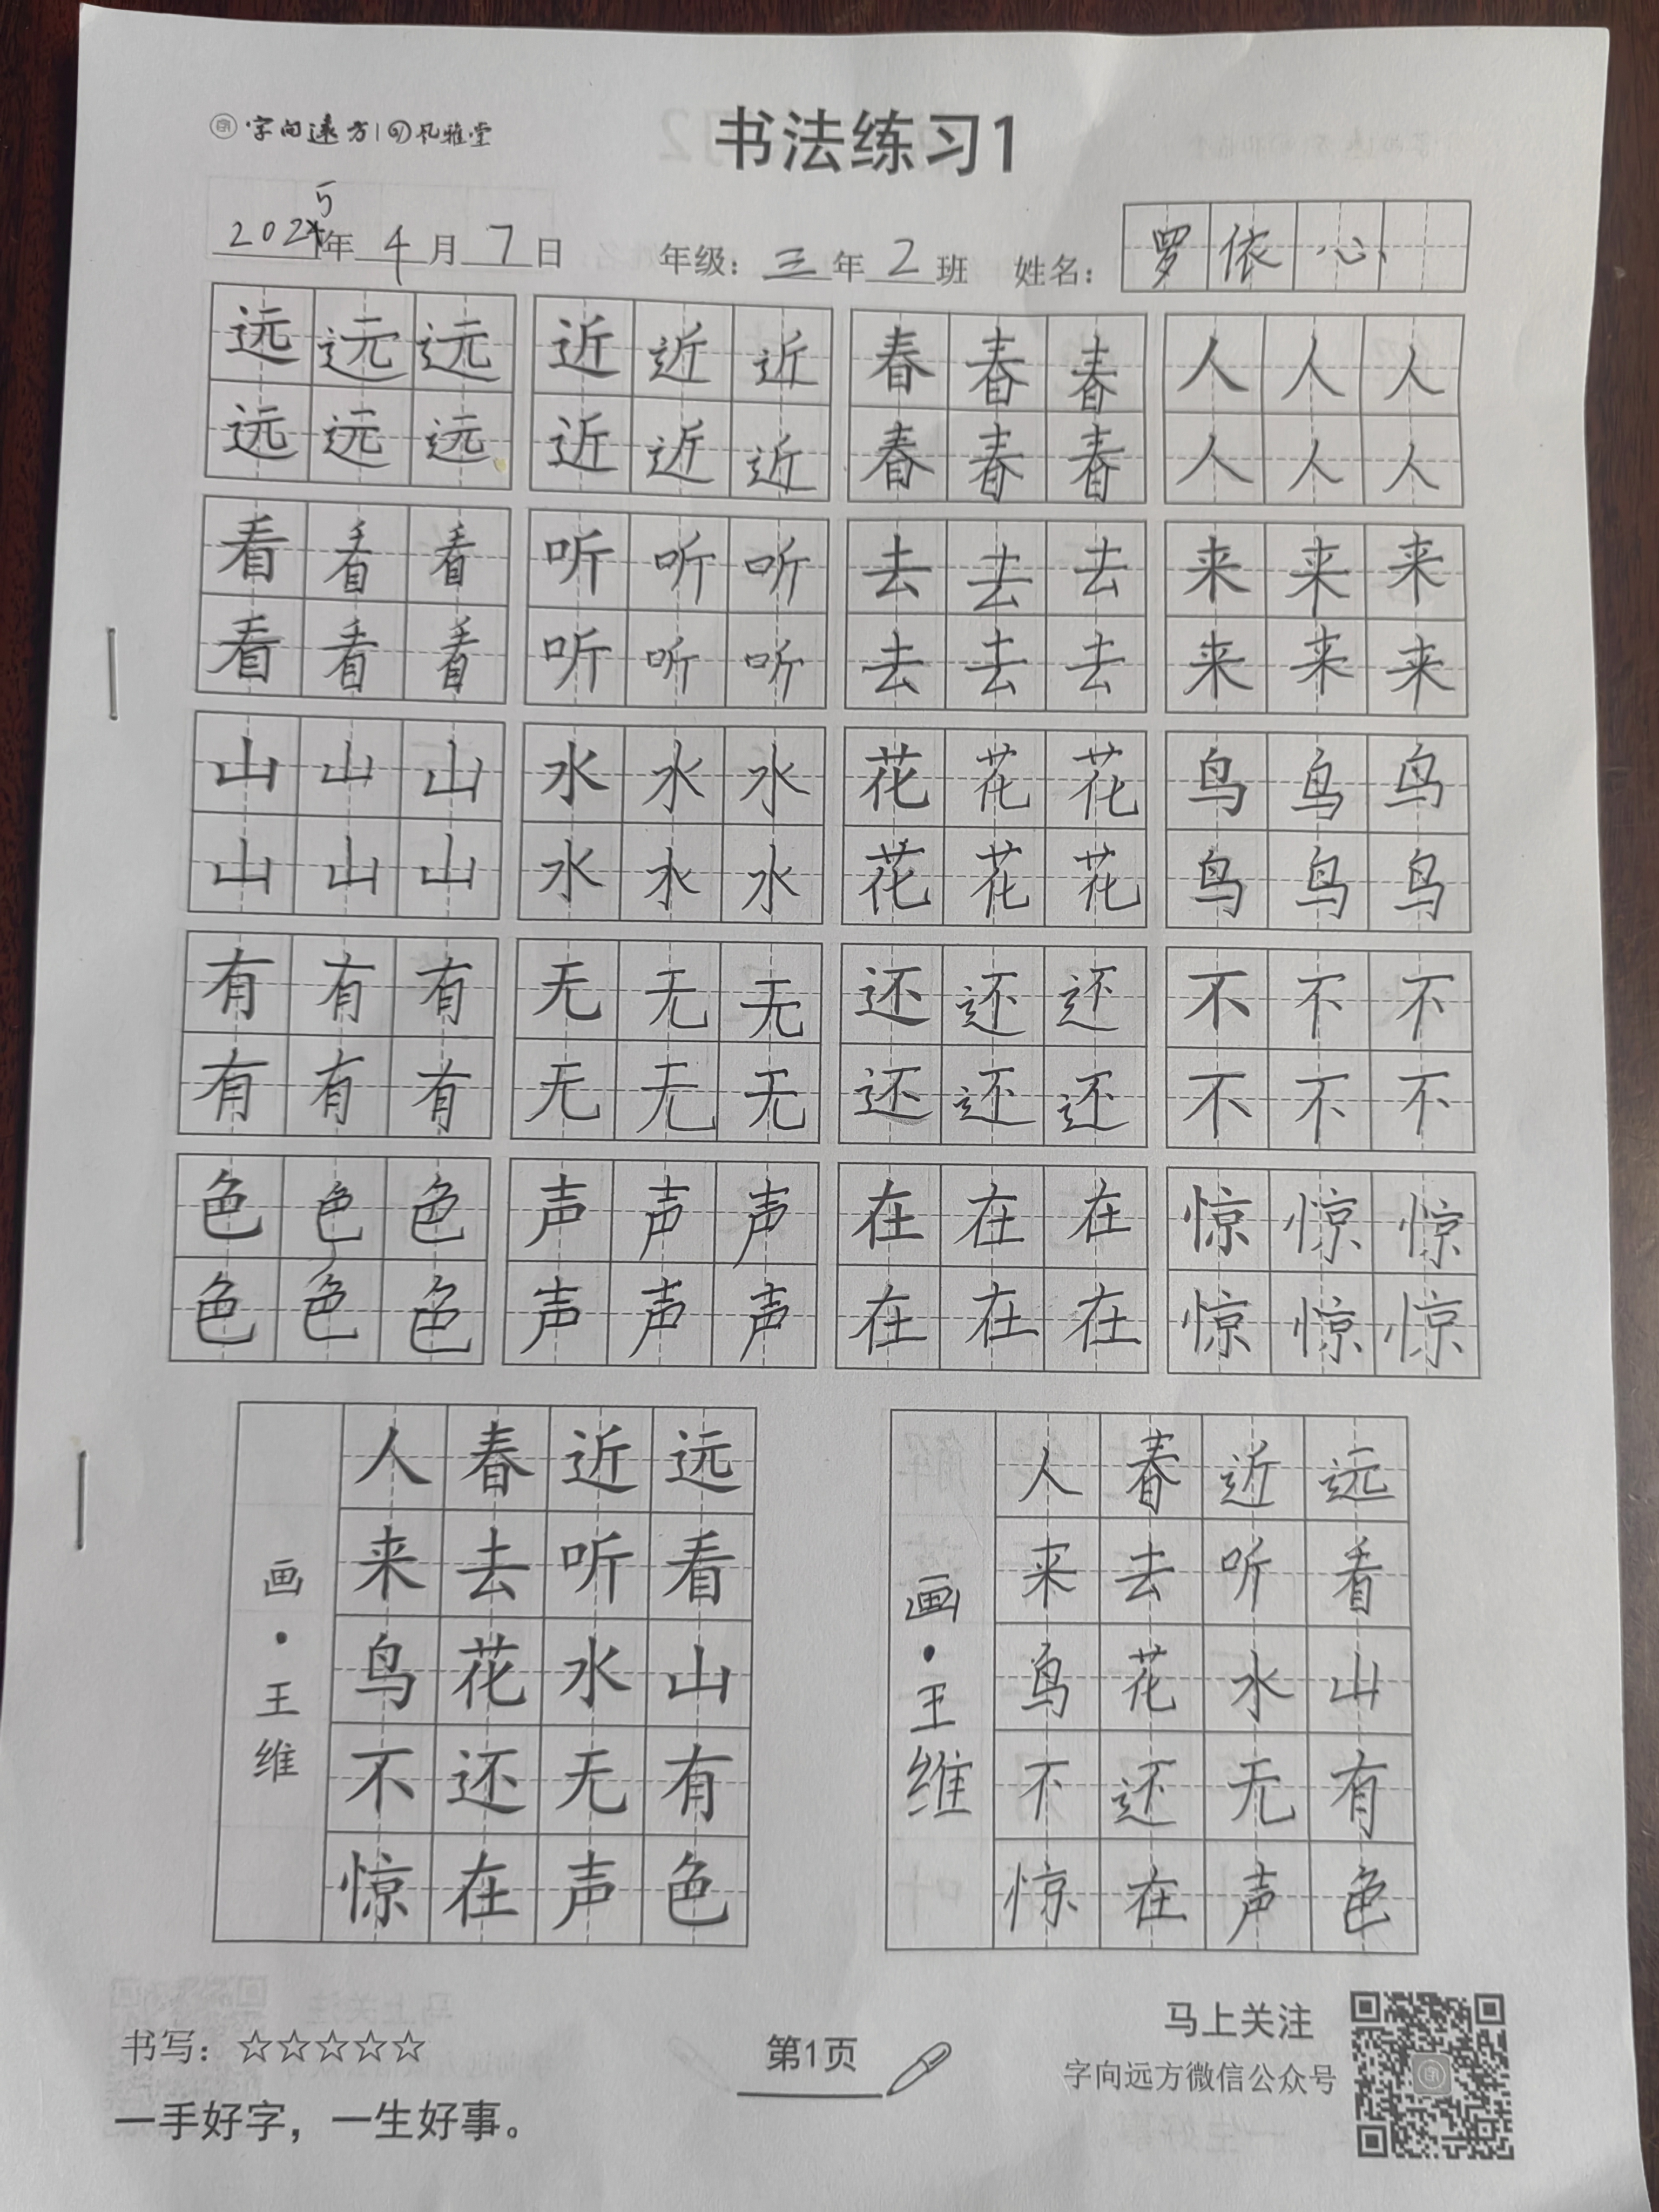 字向遠方 风雅堂
书法练习1
2025年 4月 7日 年级：三年2班 姓名：罗依心
远远远 近近近 春春春 人人人
远远远 近近近 春春春 人人人
看看看 听听听 去去去 来来来
看看看 听听听 去去去 来来来
山山山 水水水 花花花 鸟鸟鸟
山山山 水水水 花花花 鸟鸟鸟
有有有 无无无 还还还 不不不
有有有 无无无 还还还 不不不
色色色 声声声 在在在 惊惊惊
色色色 声声声 在在在 惊惊惊
远看山有色
近听水无声
春去花还在
人来鸟不惊
画·王维
远看山有色
近听水无声
春去花还在
人来鸟不惊
画·王维
书写：☆☆☆☆☆
一手好字，一生好事。
第1页
马上关注
字向远方微信公众号